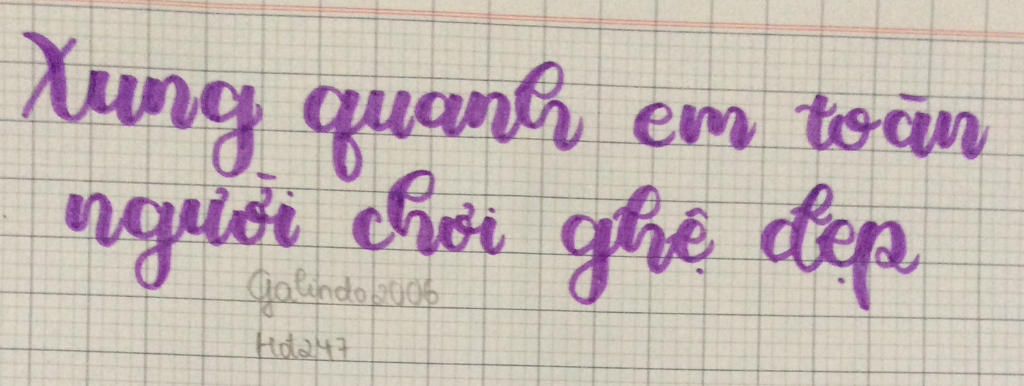 Xung quanh em toàn
người chơi ghệ đẹp
Galindo2006
Hd247